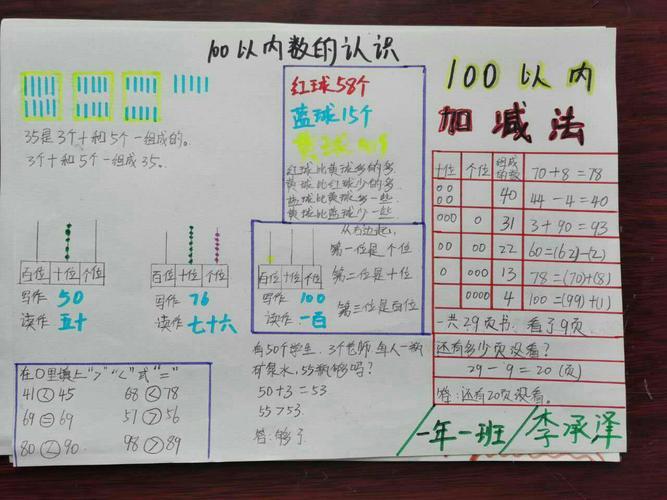 100以内数的认识
35是3个十和5个一组成的。
3个十和5个一组成35。
百位 十位 个位
写作 50
读作 五十
百位 十位 个位
写作 76
读作 七十六
在O里填上">""<"或"="
41<45 68<78
69=69 51>56
80<90 98>89
红球58个
蓝球15个
黄球
红球比黄球多的多
黄球比红球少的多
蓝球比黄球多一些
黄球比蓝球少一些
从右边起,
第一位是个位
第二位是十位
第三位是百位
百位 十位 个位
写作 100
读作 一百
有50个学生,3个老师 每人一瓶
矿泉水,55瓶够吗?
50+3=53
55>53
答:够了
100以内
加减法
十位 个位 组成的数 70+8=78
40 44-4=40
31 3+90=93
22 60=(62)-(2)
13 78=(70)+(8)
4 100=(99)+(1)
一共29页书,看了9页.
还有多少页没看?
29-9=20(页)
答:还有20页没看。
一年一班/李承泽